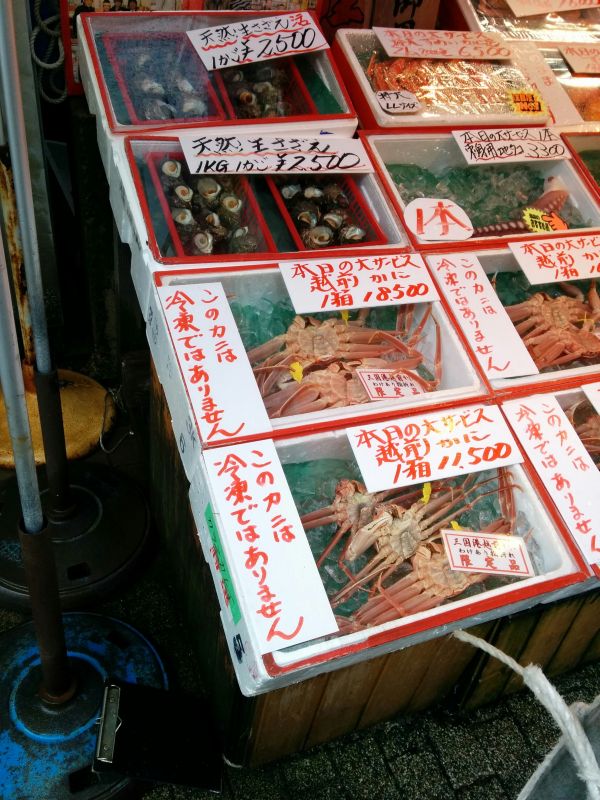 天然 生さざえ 活
1かご 2,500
天然 生さざえ
1KG 1かご ¥2,500
特大
LLサイズ
本日の大サービス 1本
3300
1本
本日の大サービス
越前 かに
1箱 18,500
このカニは
冷凍ではありません
三国港
わけあり
限定品
本日の大サービス
越前 かに
1箱 11,500
このカニは
冷凍ではありません
三国港
わけあり足折れ
限定品
本日の大サービス
越前
1箱
このカニは
冷凍ではありません
このカニは
冷凍ではありません
本日の